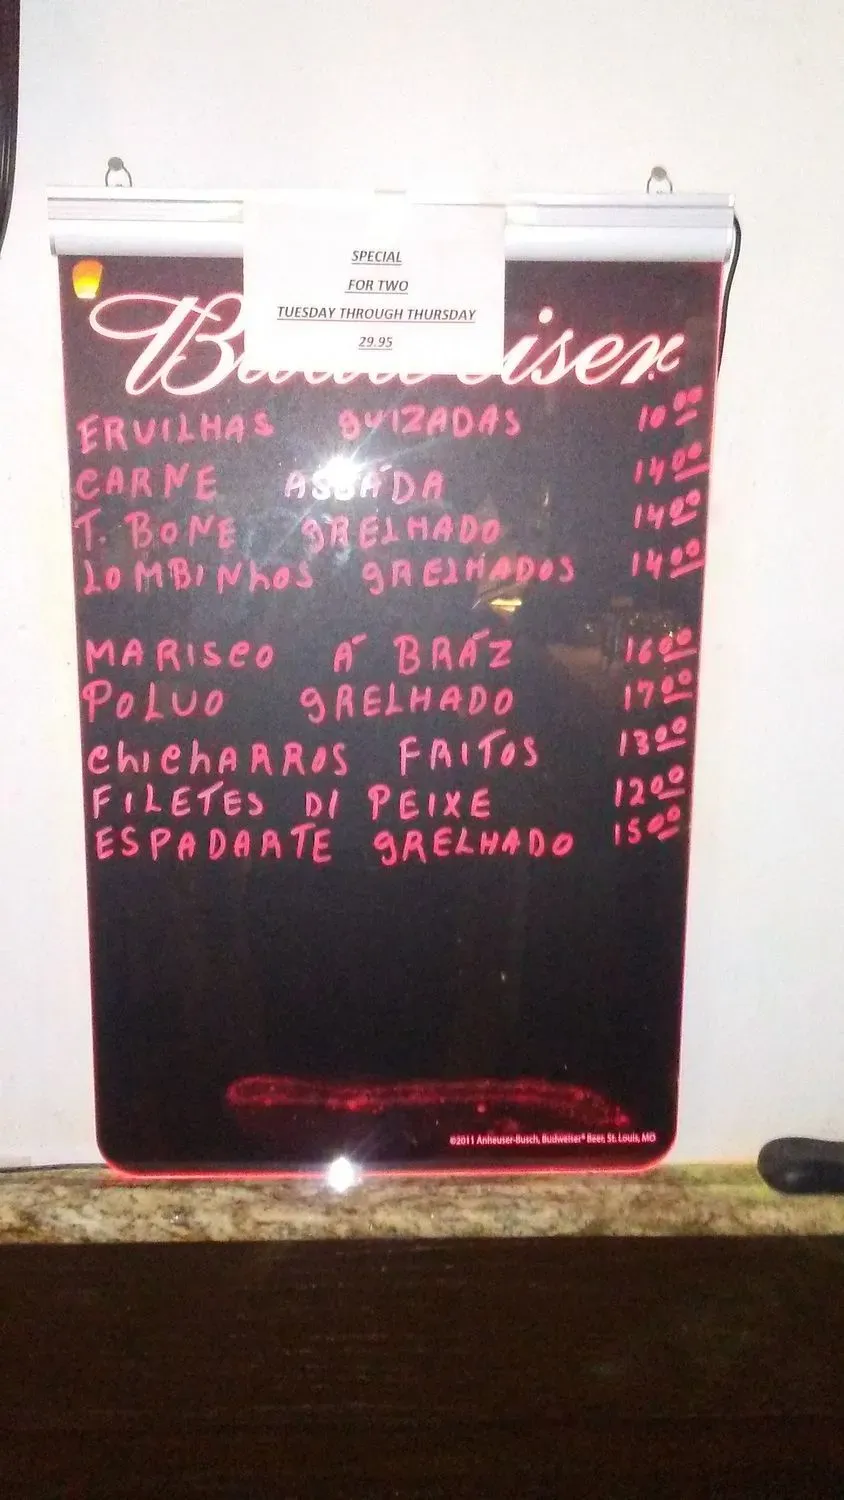 SPECIAL
FOR TWO
TUESDAY THROUGH THURSDAY
29.95
ERVILHAS gUIZADAS 10 00
CARNE ASSADA 14 00
T. BONE gRELHADO 14 00
LOMBINhOS gRELHADOS 14 00
MARISCO Á BRÁZ 16 00
POLVO gRELHADO 17 00
ChIChARROS FRITOS 13 00
FILETES DI PEIXE 12 00
ESPADARTE gRELHADO 15 00
©2011 Anheuser-Busch, Budweiser® Beer, St. Louis, MO